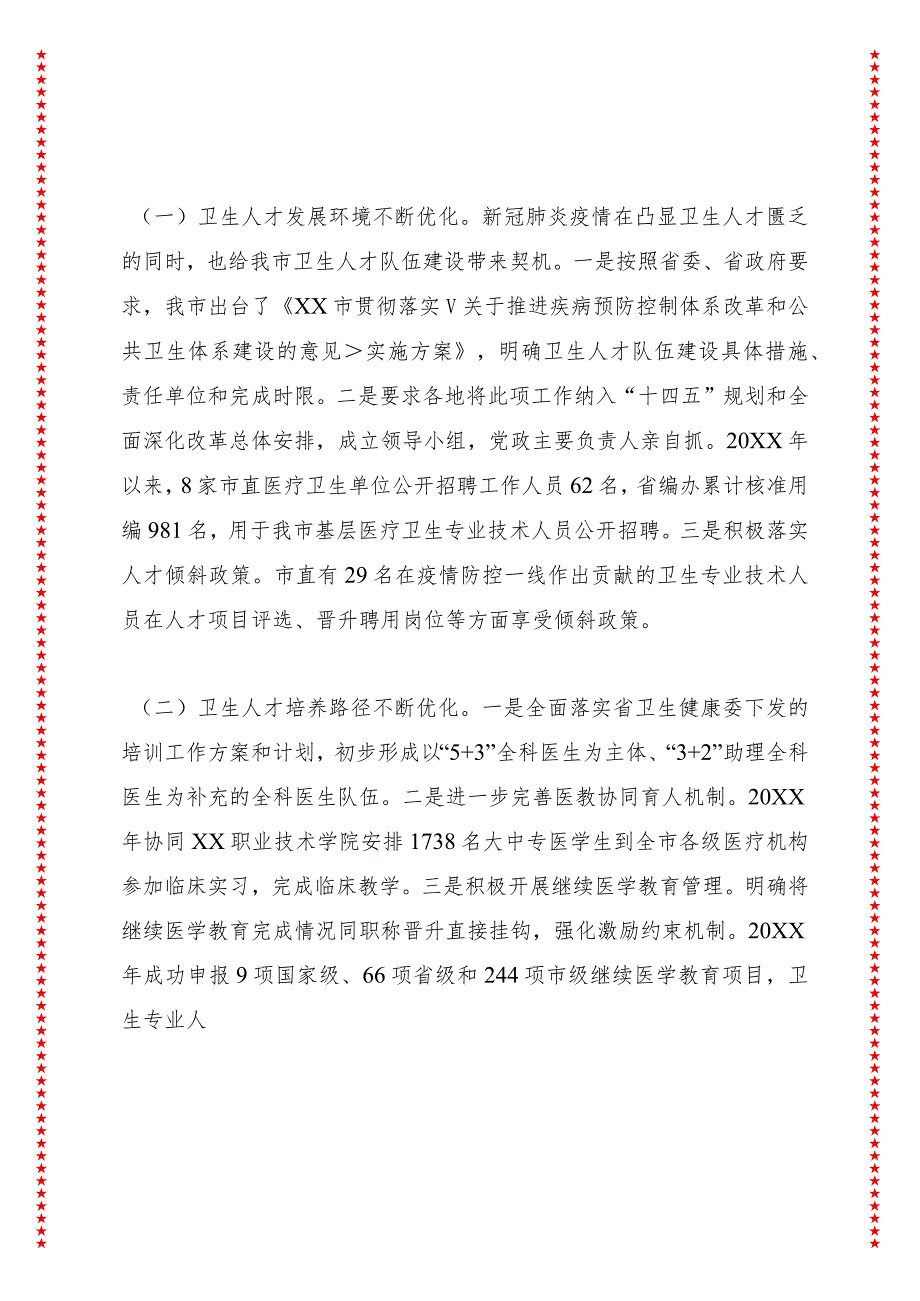 （一）卫生人才发展环境不断优化。新冠肺炎疫情在凸显卫生人才匮乏
的同时，也给我市卫生人才队伍建设带来契机。一是按照省委、省政府要
求，我市出台了《XX 市贯彻落实 V 关于推进疾病预防控制体系改革和公
共卫生体系建设的意见＞实施方案》，明确卫生人才队伍建设具体措施、
责任单位和完成时限。二是要求各地将此项工作纳入“十四五”规划和全
面深化改革总体安排，成立领导小组，党政主要负责人亲自抓。20XX 年
以来，8 家市直医疗卫生单位公开招聘工作人员 62 名，省编办累计核准用
编 981 名，用于我市基层医疗卫生专业技术人员公开招聘。三是积极落实
人才倾斜政策。市直有 29 名在疫情防控一线作出贡献的卫生专业技术人
员在人才项目评选、晋升聘用岗位等方面享受倾斜政策。
（二）卫生人才培养路径不断优化。一是全面落实省卫生健康委下发的
培训工作方案和计划，初步形成以“5+3”全科医生为主体、“3+2”助理全科
医生为补充的全科医生队伍。二是进一步完善医教协同育人机制。20XX
年协同 XX 职业技术学院安排 1738 名大中专医学生到全市各级医疗机构
参加临床实习，完成临床教学。三是积极开展继续医学教育管理。明确将
继续医学教育完成情况同职称晋升直接挂钩，强化激励约束机制。20XX
年成功申报 9 项国家级、66 项省级和 244 项市级继续医学教育项目，卫
生专业人